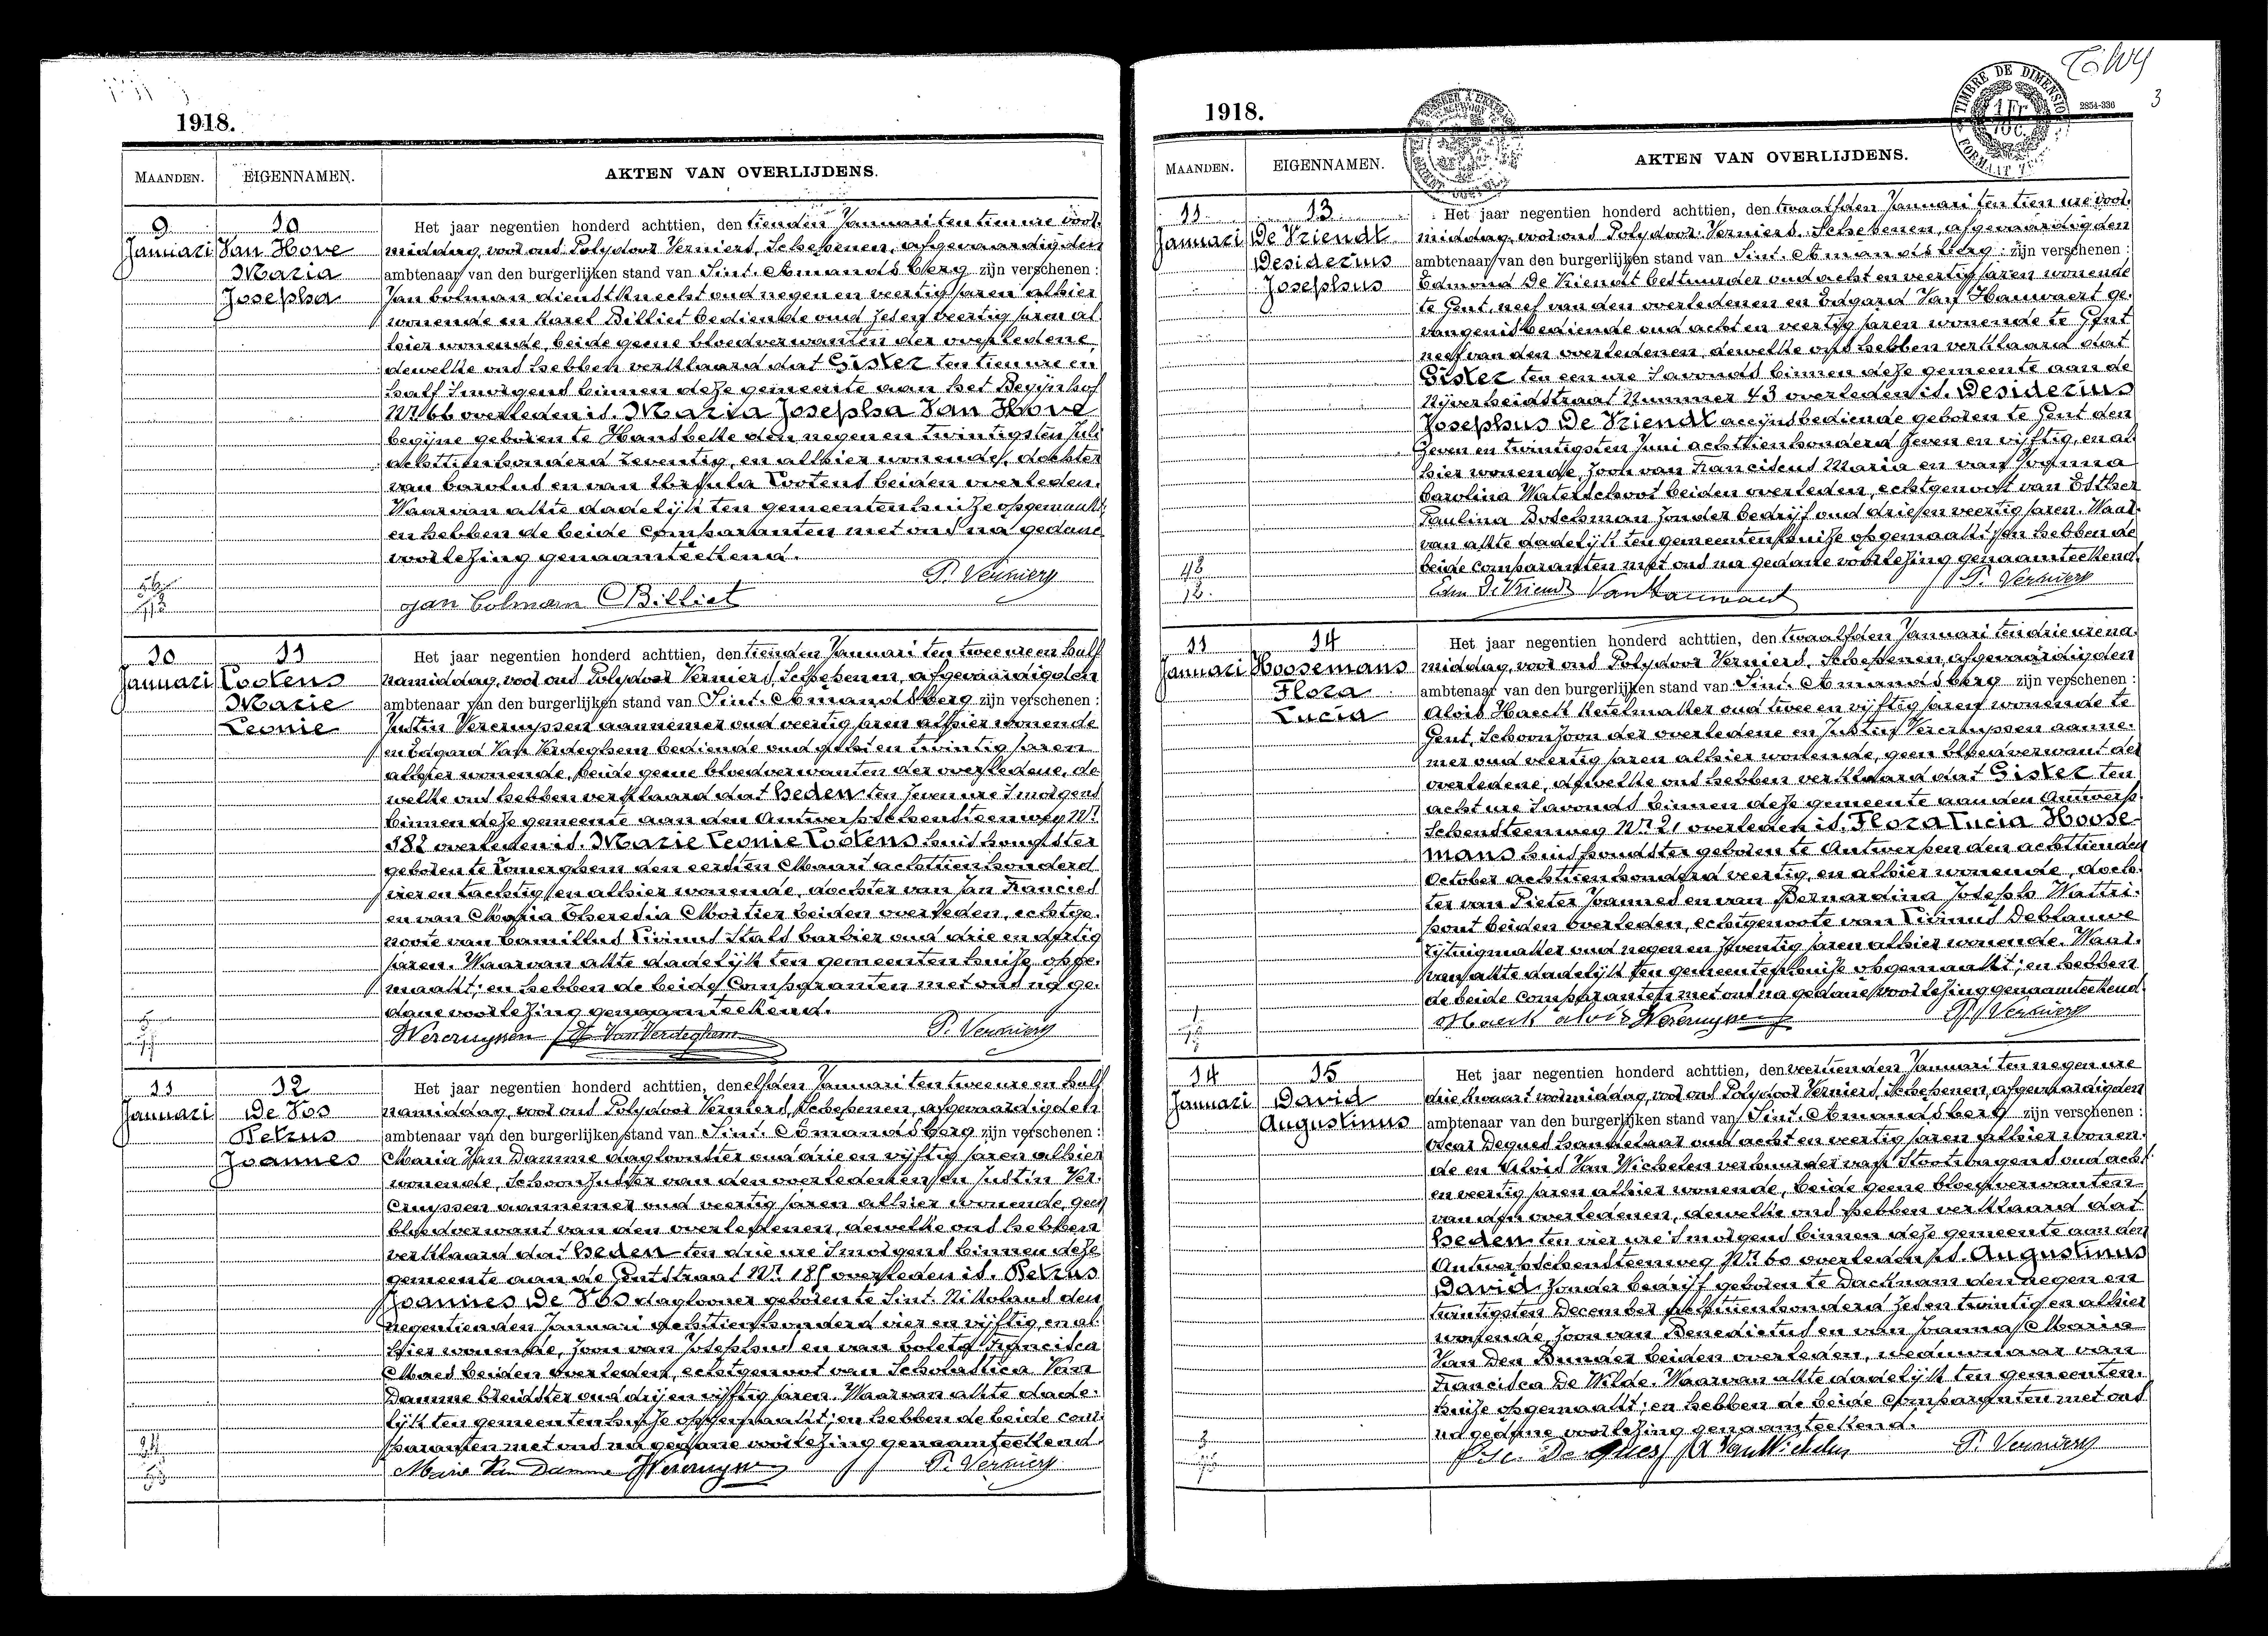 1918.
MAANDEN. EIGENNAMEN. AKTEN VAN OVERLIJDENS.
9 Januari
10 Van Hove Maria Josepha
Het jaar negentien honderd achttien, den tienden Januari ten tien ure voor-
middag, voor ons Polydoor Verniers, Schepenen, afgevaardigden
ambtenaar van den burgerlijken stand van Sint-Amandsberg zijn verschenen :
Jan Colman dienstknecht oud negen en veertig jaren alhier
wonende en Karel Billiet bediende oud zes en veertig jaren al-
hier wonende, beide geene bloedverwanten der overledene,
dewelke ons hebben verklaard dat Gister ten tien ure en
half 's morgens binnen deze gemeente aan het Begijnhof
Nr 66 overleden is. Maria Josepha Van Hove
begijne geboren te Hansbeke den negen en twintigsten Juli
achttienhonderd zeventig, en alhier wonende, dochter
van Carolus en van Ursula Lootens beiden overleden.
Waarvan akte dadelijk ten gemeentenhuize opgemaakt;
en hebben de beide Comparanten met ons na gedane
voorlezing genaamteekend.
Jan Colman CBilliet P. Verniers
10 Januari
11 Lootens Marie Leonie
Het jaar negentien honderd achttien, den tienden Januari ten twee ure en half
namiddag, voor ons Polydoor Verniers, Schepenen, afgevaardigden
ambtenaar van den burgerlijken stand van Sint-Amandsberg zijn verschenen :
Justin Vercruyssen aannemer oud veertig jaren alhier wonende
en Edgard Van Verdeghem bediende oud acht en twintig jaren
alhier wonende, beide geene bloedverwanten der overledene, de-
welke ons hebben verklaard dat heden ten zeven ure 's morgens
binnen deze gemeente aan den Antwerpschensteenweg Nr
182 overleden is. Marie Leonie Lootens huishoudster
geboren te Lomerghem den eersten Maart achttienhonderd
vier en tachtig en alhier wonende, dochter van Jan Francies
en van Maria Theresia Mortier beiden overleden, echtge-
noote van Camillus Livinus Stals barbier oud drie en dertig
jaren. Waarvan akte dadelijk ten gemeentenhuize opge-
maakt; en hebben de beide Comparanten met ons na ge-
dane voorlezing genaamteekend.
JVercruyssen E. Van Verdeghem P. Verniers
11 Januari
12 De Vos Petrus Joannes
Het jaar negentien honderd achttien, den elfden Januari ten twee ure en half
namiddag, voor ons Polydoor Verniers, Schepenen, afgevaardigden
ambtenaar van den burgerlijken stand van Sint-Amandsberg zijn verschenen :
Maria Van Damme dagloonster oud drie en vijftig jaren alhier
wonende, Schoonzuster van den overledenen en Justin Ver-
cruyssen aannemer oud veertig jaren alhier wonende, geen
bloedverwant van den overledenen, dewelke ons hebben
verklaard dat heden ten drie ure 's morgens binnen deze
gemeente aan de Gentstraat Nr overleden is. Petrus
Joannes De Vos daglooner geboren te Sint-Nikolaas den
negentienden Januari achttienhonderd vier en vijftig, en al-
hier wonende, zoon van Josephus en van Coleta Francisca
Maes beiden overleden, echtgenoot van Scholastica Van
Damme breidster oud drij en vijftig jaren. Waarvan akte dade-
lijk ten gemeentenhuize opgemaakt; en hebben de beide com-
paranten met ons na gedane voorlezing genaamteekend
Marie Van Damme JVercruyssen P. Verniers
1918.
TIMBRE DE DIMENSION
2854-336
3
MAANDEN. EIGENNAMEN. AKTEN VAN OVERLIJDENS.
11 Januari
13 De Vriendt Desiderius Josephus
Het jaar negentien honderd achttien, den twaalfden Januari ten tien ure voor-
middag, voor ons Polydoor Verniers, Schepenen, afgevaardigden
ambtenaar van den burgerlijken stand van Sint-Amandsberg zijn verschenen :
Edmond De Vriendt bestuurder oud acht en veertig jaren wonende
te Gent, neef van den overledenen en Edgard Van Hauwaert ge-
vangenisbediende oud acht en veertig jaren wonende te Gent
neef van den overledenen, dewelke ons hebben verklaard dat
Gister ten een ure 's avonds binnen deze gemeente aan de
Nijverheidstraat Nummer 43 overleden is. Desiderius
Josephus De Vriendt accijnsbediende geboren te Gent den
Zeven en twintigsten Juni achttienhonderd zeven en vijftig, en al-
hier wonende, zoon van Franciscus Maria en van Joanna
Carolina Waterschoot beiden overleden, echtgenoot van Esther
Paulina Boschman zonder bedrijf oud drie en veertig jaren. Waar-
van akte dadelijk ten gemeentenhuize opgemaakt; en hebben de
beide Comparanten met ons na gedane voorlezing genaamteekend.
Edm. De Vriendt VanHauwaert P. Verniers
11 Januari
14 Hoosemans Flora Lucia
Het jaar negentien honderd achttien, den twaalfden Januari ten drie ure na-
middag, voor ons Polydoor Verniers, Schepenen, afgevaardigden
ambtenaar van den burgerlijken stand van Sint-Amandsberg zijn verschenen :
Aloïs Haeck ketelmaker oud twee en vijftig jaren wonende te
Gent, Schoonzoon der overledene en Justin Vercruyssen aanne-
mer oud veertig jaren alhier wonende, geen bloedverwant der
overledene, dewelke ons hebben verklaard dat Gister ten
acht ure 's avonds binnen deze gemeente aan den Antwerp-
schensteenweg Nr 21 overleden is. Flora Lucia Hoose-
mans huishoudster geboren te Antwerpen den achttienden
October achttienhonderd veertig, en alhier wonende, doch-
ter van Pieter Joannes en van Bernardina Joseph Wattri-
pont beiden overleden, echtgenoote van Livinus Deblauwe
rijtuigmaker oud negen en zeventig jaren alhier wonende. Waar-
van akte dadelijk ten gemeentenhuize opgemaakt; en hebben
de beide comparanten met ons na gedane voorlezing genaamteekend
Haeck aloïs JVercruyssen P. Verniers
14 Januari
15 David Augustinus
Het jaar negentien honderd achttien, den veertienden Januari ten negen ure
drie kwaart voormiddag, voor ons Polydoor Verniers, Schepenen, afgevaardigden
ambtenaar van den burgerlijken stand van Sint-Amandsberg zijn verschenen :
Oscar Deques handelaar oud acht en veertig jaren alhier wonen-
de en Aloïs Van Wichelen verhuurder van Stootwagens oud acht
en veertig jaren alhier wonende, beide geene bloedverwanten
van den overledenen, dewelke ons hebben verklaard dat
heden ten vier ure 's morgens binnen deze gemeente aan den
Antwerpschensteenweg Nr 60 overleden is. Augustinus
David zonder bedrijf geboren te Dacknam den negen en
twintigsten December achttienhonderd zes en twintig en alhier
wonende, zoon van Benedictus en van Joanna Maria
Van Den Bunder beiden overleden, weduwnaar van
Francisca De Wilde. Waarvan akte dadelijk ten gemeenten-
huize opgemaakt; en hebben de beide Comparanten met ons
na gedane voorlezing genaamteekend.
Osc. Deques A VanWichelen P. Verniers